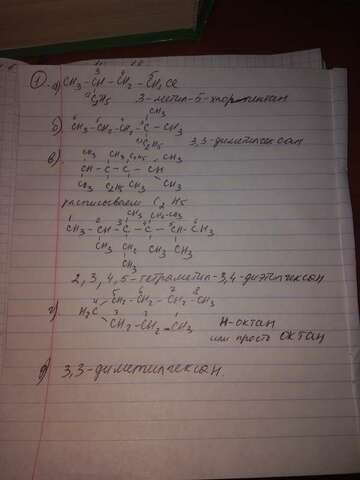 ① а) CH3-CH-CH2-CH2Cl
C2H5
3-метил-5-хлорпентан
CH3
б) CH3-CH2-CH2-C-CH3
C2H5
3,3-диметилгексан
в) CH3 CH3 C2H5 CH3
CH-C-C-CH
CH3 C2H5 CH3 CH3
расписываем C2H5
CH3 CH2-CH3
CH3-CH-C-C-CH-CH3
CH3 CH2 CH3 CH3
CH3
2,3,4,5-тетраметил-3,4-диэтилгексан
г) CH2-CH2-CH2-CH3
H2C
CH2-CH2-CH3
Н-октан
или просто октан
д) 3,3-диметилгексан.